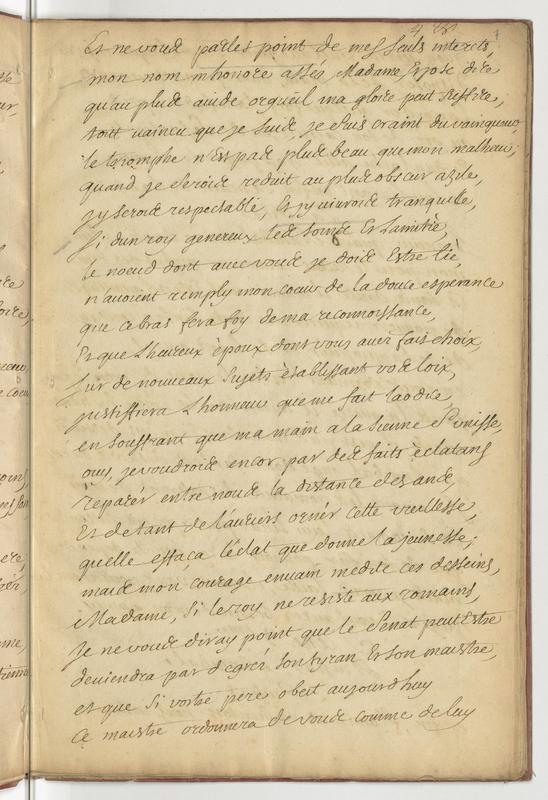 Et ne vous parles point de mes seuls interests,
mon nom m'honore assés, Madame, Et jose dire
qu'au plus auide orgueil ma gloire peut suffire,
tout uaincu que je suis je suis craint du uainqueur,
le triomphe n'est pas plus beau que mon malheur,
quand je serois reduit au plus obscur azile,
j'y serois respectable, Et jy uiurois tranquille,
si dun roy genereux les soins Et Lamitié,
le noeud dont auec vous je dois Estre lié,
n'auoient remply mon coeur de la douce esperance
que ce bras fera foy de ma reconnoissance,
Et que L'heureux époux dont vous auez fait choix,
sur de nouueaux sujets établissant vos loix,
justiffiera L'honneur que me fait laodice,
en souffrant que ma main a la sienne s'unisse,
ouy, je voudrois encor par des faits éclatans
reparér entre nous la distance des ans,
Et de tant de lauriers ornér cette vieillesse,
quelle effaça l'éclat que donne la jeunesse;
mais mon courage en uain medite ces desseins,
Madame, si le roy ne resiste aux romains,
je ne vous diray point que le Senat peut Estre
deuiendra par degrez son tyran Et son maistre,
et que si vostre pere obeit aujourdhuy
Ce maistre ordonnera de vous comme de luy